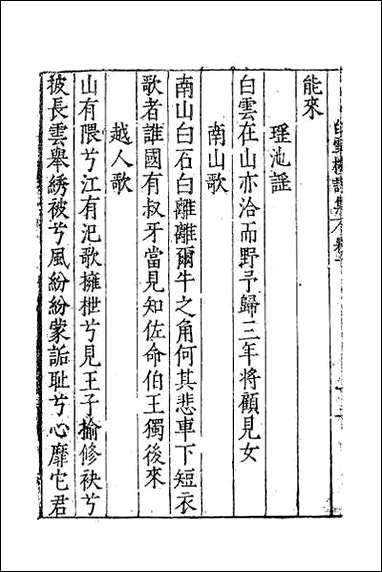 白雪樓詩集卷
能來
瑶池謡
白雲在山亦洽而野予歸三年将顧見女
南山歌
南山白石白離離爾牛之角何其悲車下短衣
歌者誰國有叔牙當見知佐命伯王獨後來
越人歌
山有隈兮江有汜歌擁枻兮見王子揄修袂兮
被長雲舉綉被兮風紛紛蒙詬耻兮心靡它君